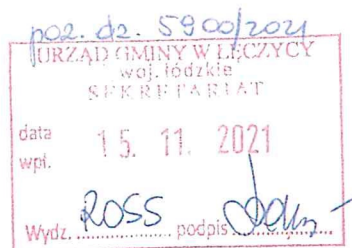 poz. dz. 5900/2021
URZĄD GMINY W ŁĘCZYCY
woj. łódzkie
SEKRETARIAT
data
wpł.
15. 11. 2021
Wydz. ROSS podpis